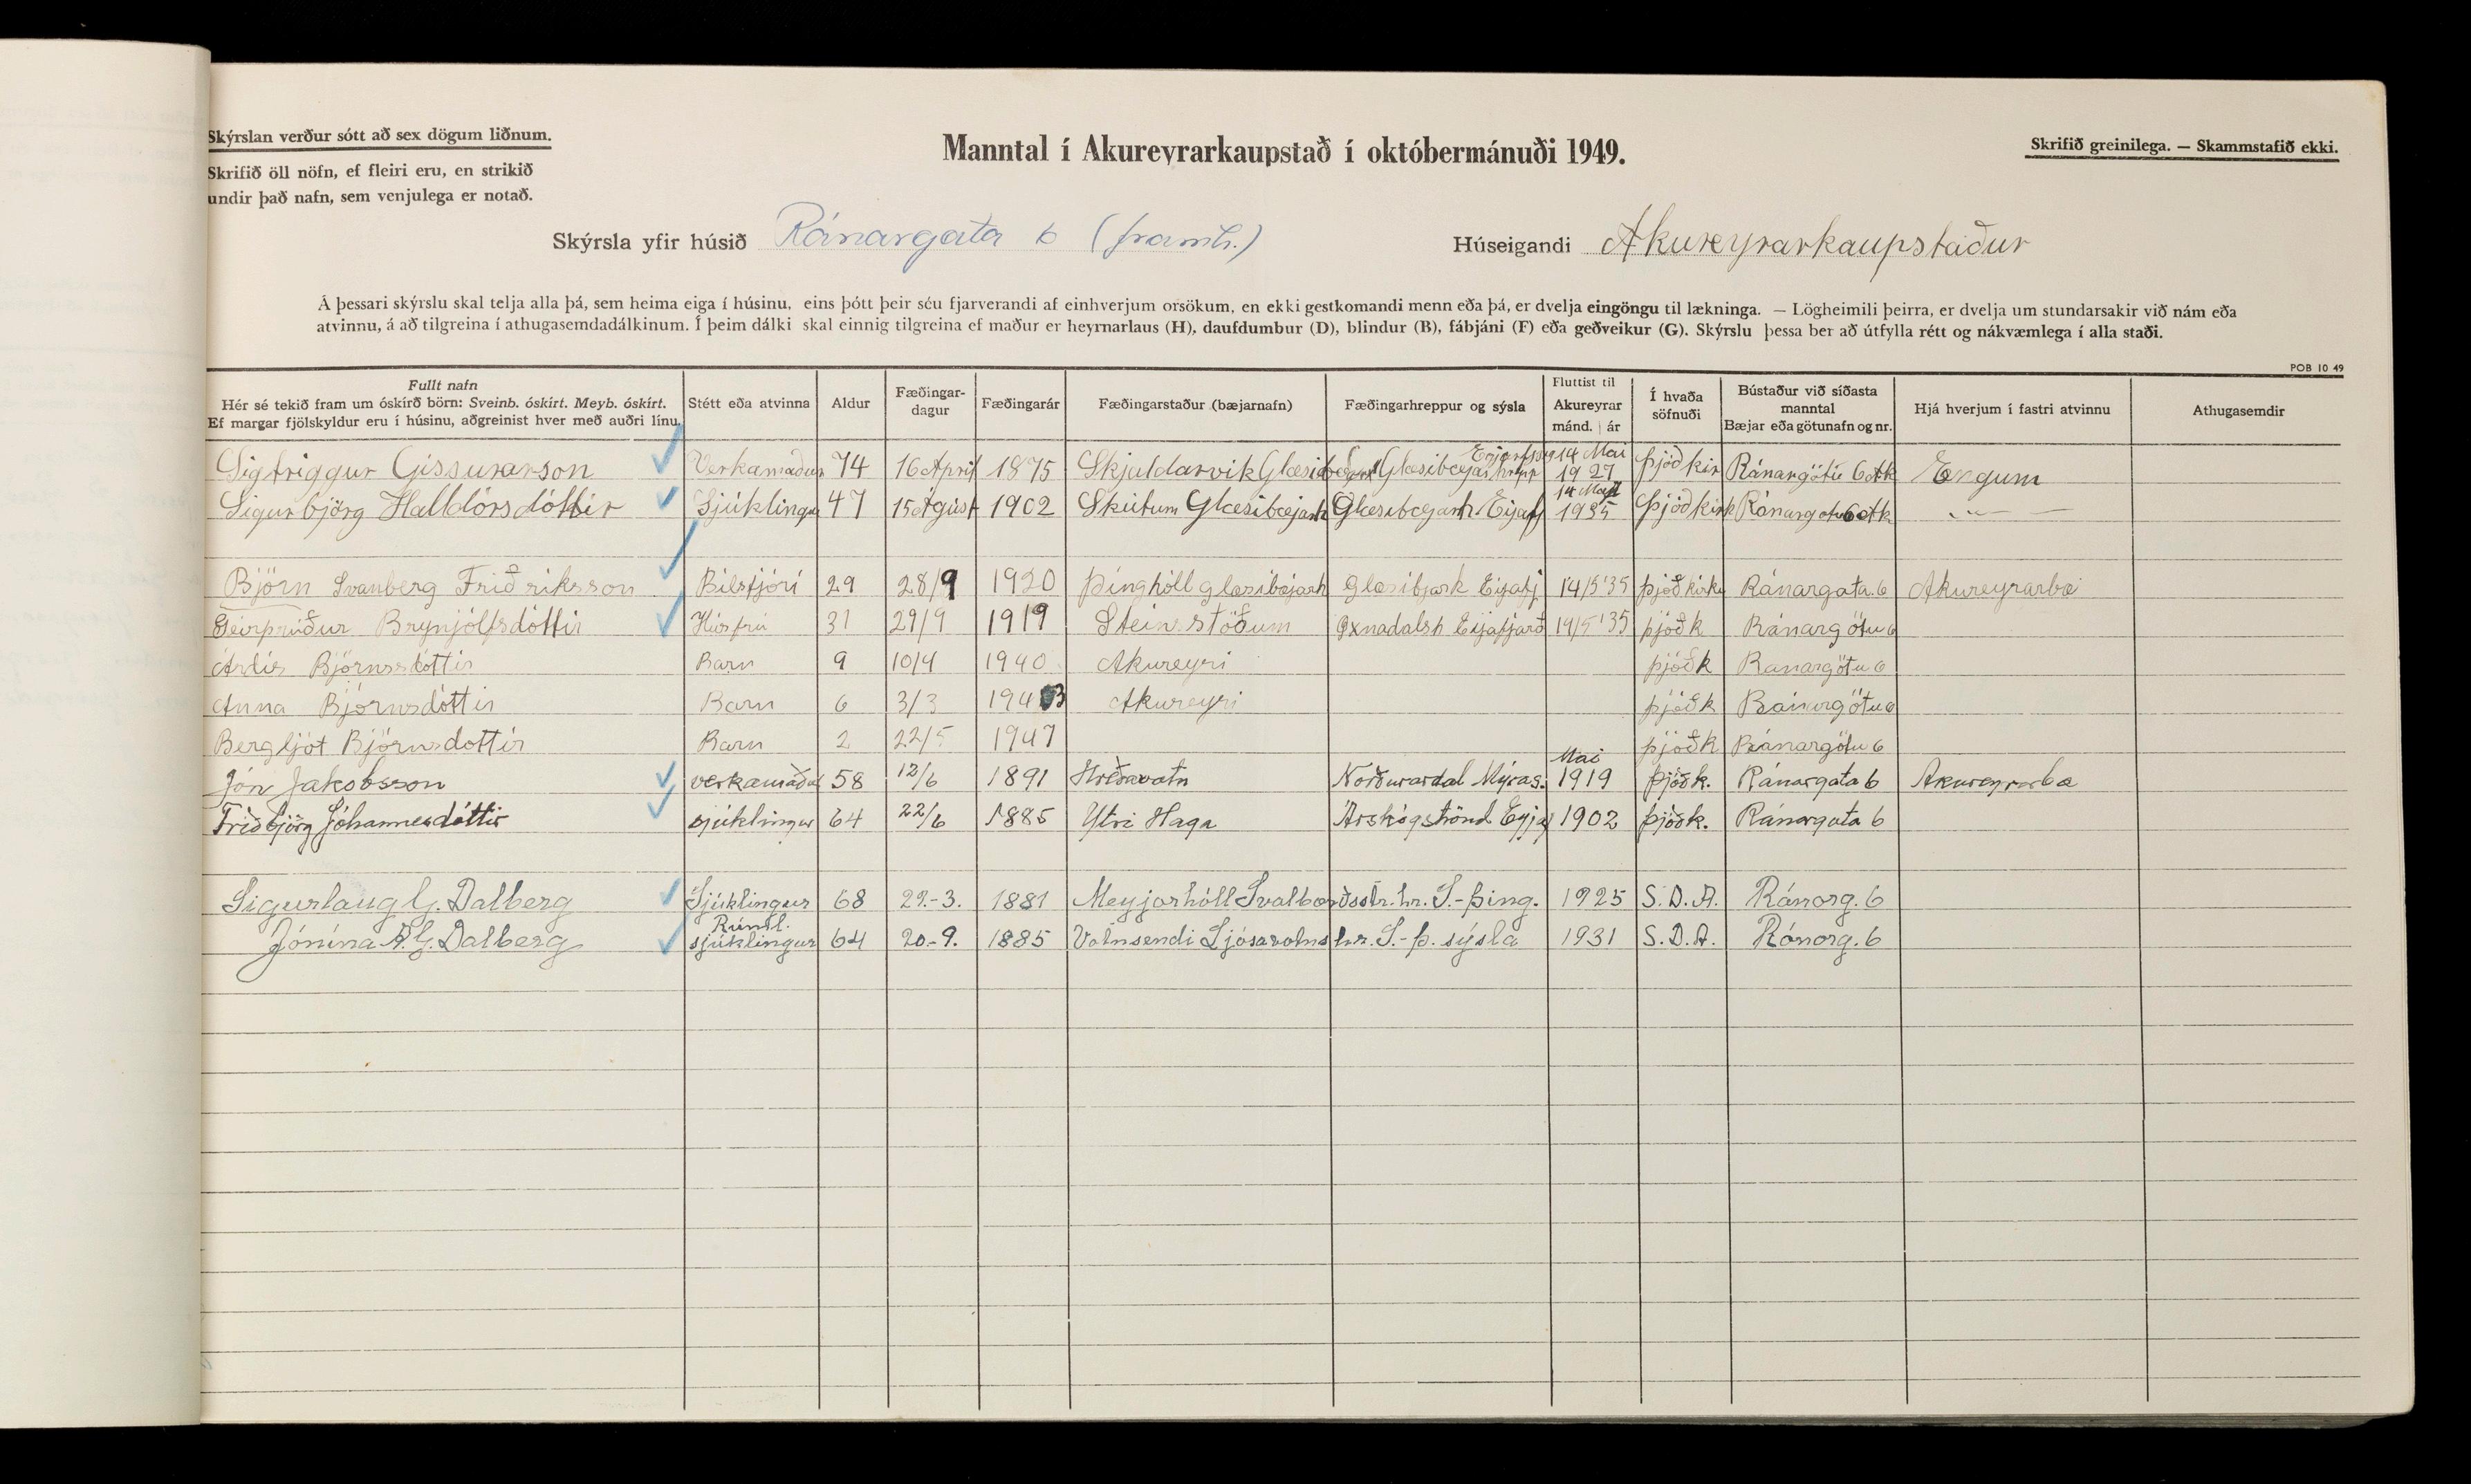 Skýrslan verður sótt að sex dögum liðnum.
Skrifið öll nöfn, ef fleiri eru, en strikið
undir það nafn, sem venjulega er notað.
Manntal í Akureyrarkaupstað í októbermánuði 1949.
Skrifið greinilega. — Skammstafið ekki.
Skýrsla yfir húsið Ránargata 6 (framh.)
Húseigandi Akureyrarkaupstaður
Á þessari skýrslu skal telja alla þá, sem heima eiga í húsinu, eins þótt þeir séu fjarverandi af einhverjum orsökum, en ekki gestkomandi menn eða þá, er dvelja eingöngu til lækninga. — Lögheimili þeirra, er dvelja um stundarsakir við nám eða
atvinnu, á að tilgreina í athugasemdadálkinum. Í þeim dálki skal einnig tilgreina ef maður er heyrnarlaus (H), daufdumbur (D), blindur (B), fábjáni (F) eða geðveikur (G). Skýrslu þessa ber að útfylla rétt og nákvæmlega í alla staði.
POB 10 49
Fullt nafn
Hér sé tekið fram um óskírð börn: Sveinb. óskírt. Meyb. óskírt.
Ef margar fjölskyldur eru í húsinu, aðgreinist hver með auðri línu.
Stétt eða atvinna
Aldur
Fæðingar-
dagur
Fæðingarár
Fæðingarstaður (bæjarnafn)
Fæðingarhreppur og sýsla
Fluttist til
Akureyrar
mánd. ár
Í hvaða
söfnuði
Bústaður við síðasta
manntal
Bæjar eða götunafn og nr.
Hjá hverjum í fastri atvinnu
Athugasemdir
Sigtriggur Gissurarson Verkamaður 74 16 April 1875 Skjaldarvik Glæsibæjarh Glæsibæjarhrepp 14 Mai 1927 þjóðkir Ránargötu 6 Ak Engum
Sigurbjörg Halldórsdóttir Sjúklingur 47 15 Ágúst 1902 Skútum Glæsibæjarh Glæsibæjarh Eyjaf 14 Maí 1935 þjóðkirk Ránargötu 6 Ak
Björn Svanberg Friðriksson Bílstjóri 29 28/9 1920 Þinghóll Glæsibæjarh Glæsibjark Eyjafj 14/5 '35 þjóðkirkj Ránargata 6 Akureyrarbæ
Geirþrúður Brynjólfsdóttir Húsfrú 31 29/9 1919 Steinsstöðum Öxnadalsh Eyjafjarð 14/5 '35 þjóðk Ránargötu 6
Árdís Björnsdóttir Barn 9 10/4 1940 Akureyri þjóðk Ránargötu 6
Anna Björnsdóttir Barn 6 3/3 1943 Akureyri þjóðk Ránargötu 6
Bergljót Björnsdottir Barn 2 22/5 1947 þjóðk Ránargötu 6
Jón Jakobsson verkamaður 58 12/6 1891 Hreðavatn Norðurardal Mýras. Mai 1919 þjóðk. Ránargata 6 Akureyrarbæ
Friðbjörg Jóhannesdóttir sjúklingur 64 22/6 1885 Ytri Haga Árskógströnd Eyjaf 1902 þjóðk. Ránargata 6
Sigurlaug G. Dalberg Sjúklingur 68 29.-3. 1881 Meyjarhóll Svalbarðsstr.hr. S.-Þing. 1925 S.D.A. Ránarg. 6
Jónína R. G. Dalberg Rúml. sjúklingur 64 20.-9. 1885 Vatnsendi Ljósavatnshr. S.-Þ. sýsla 1931 S.D.A. Ránarg. 6